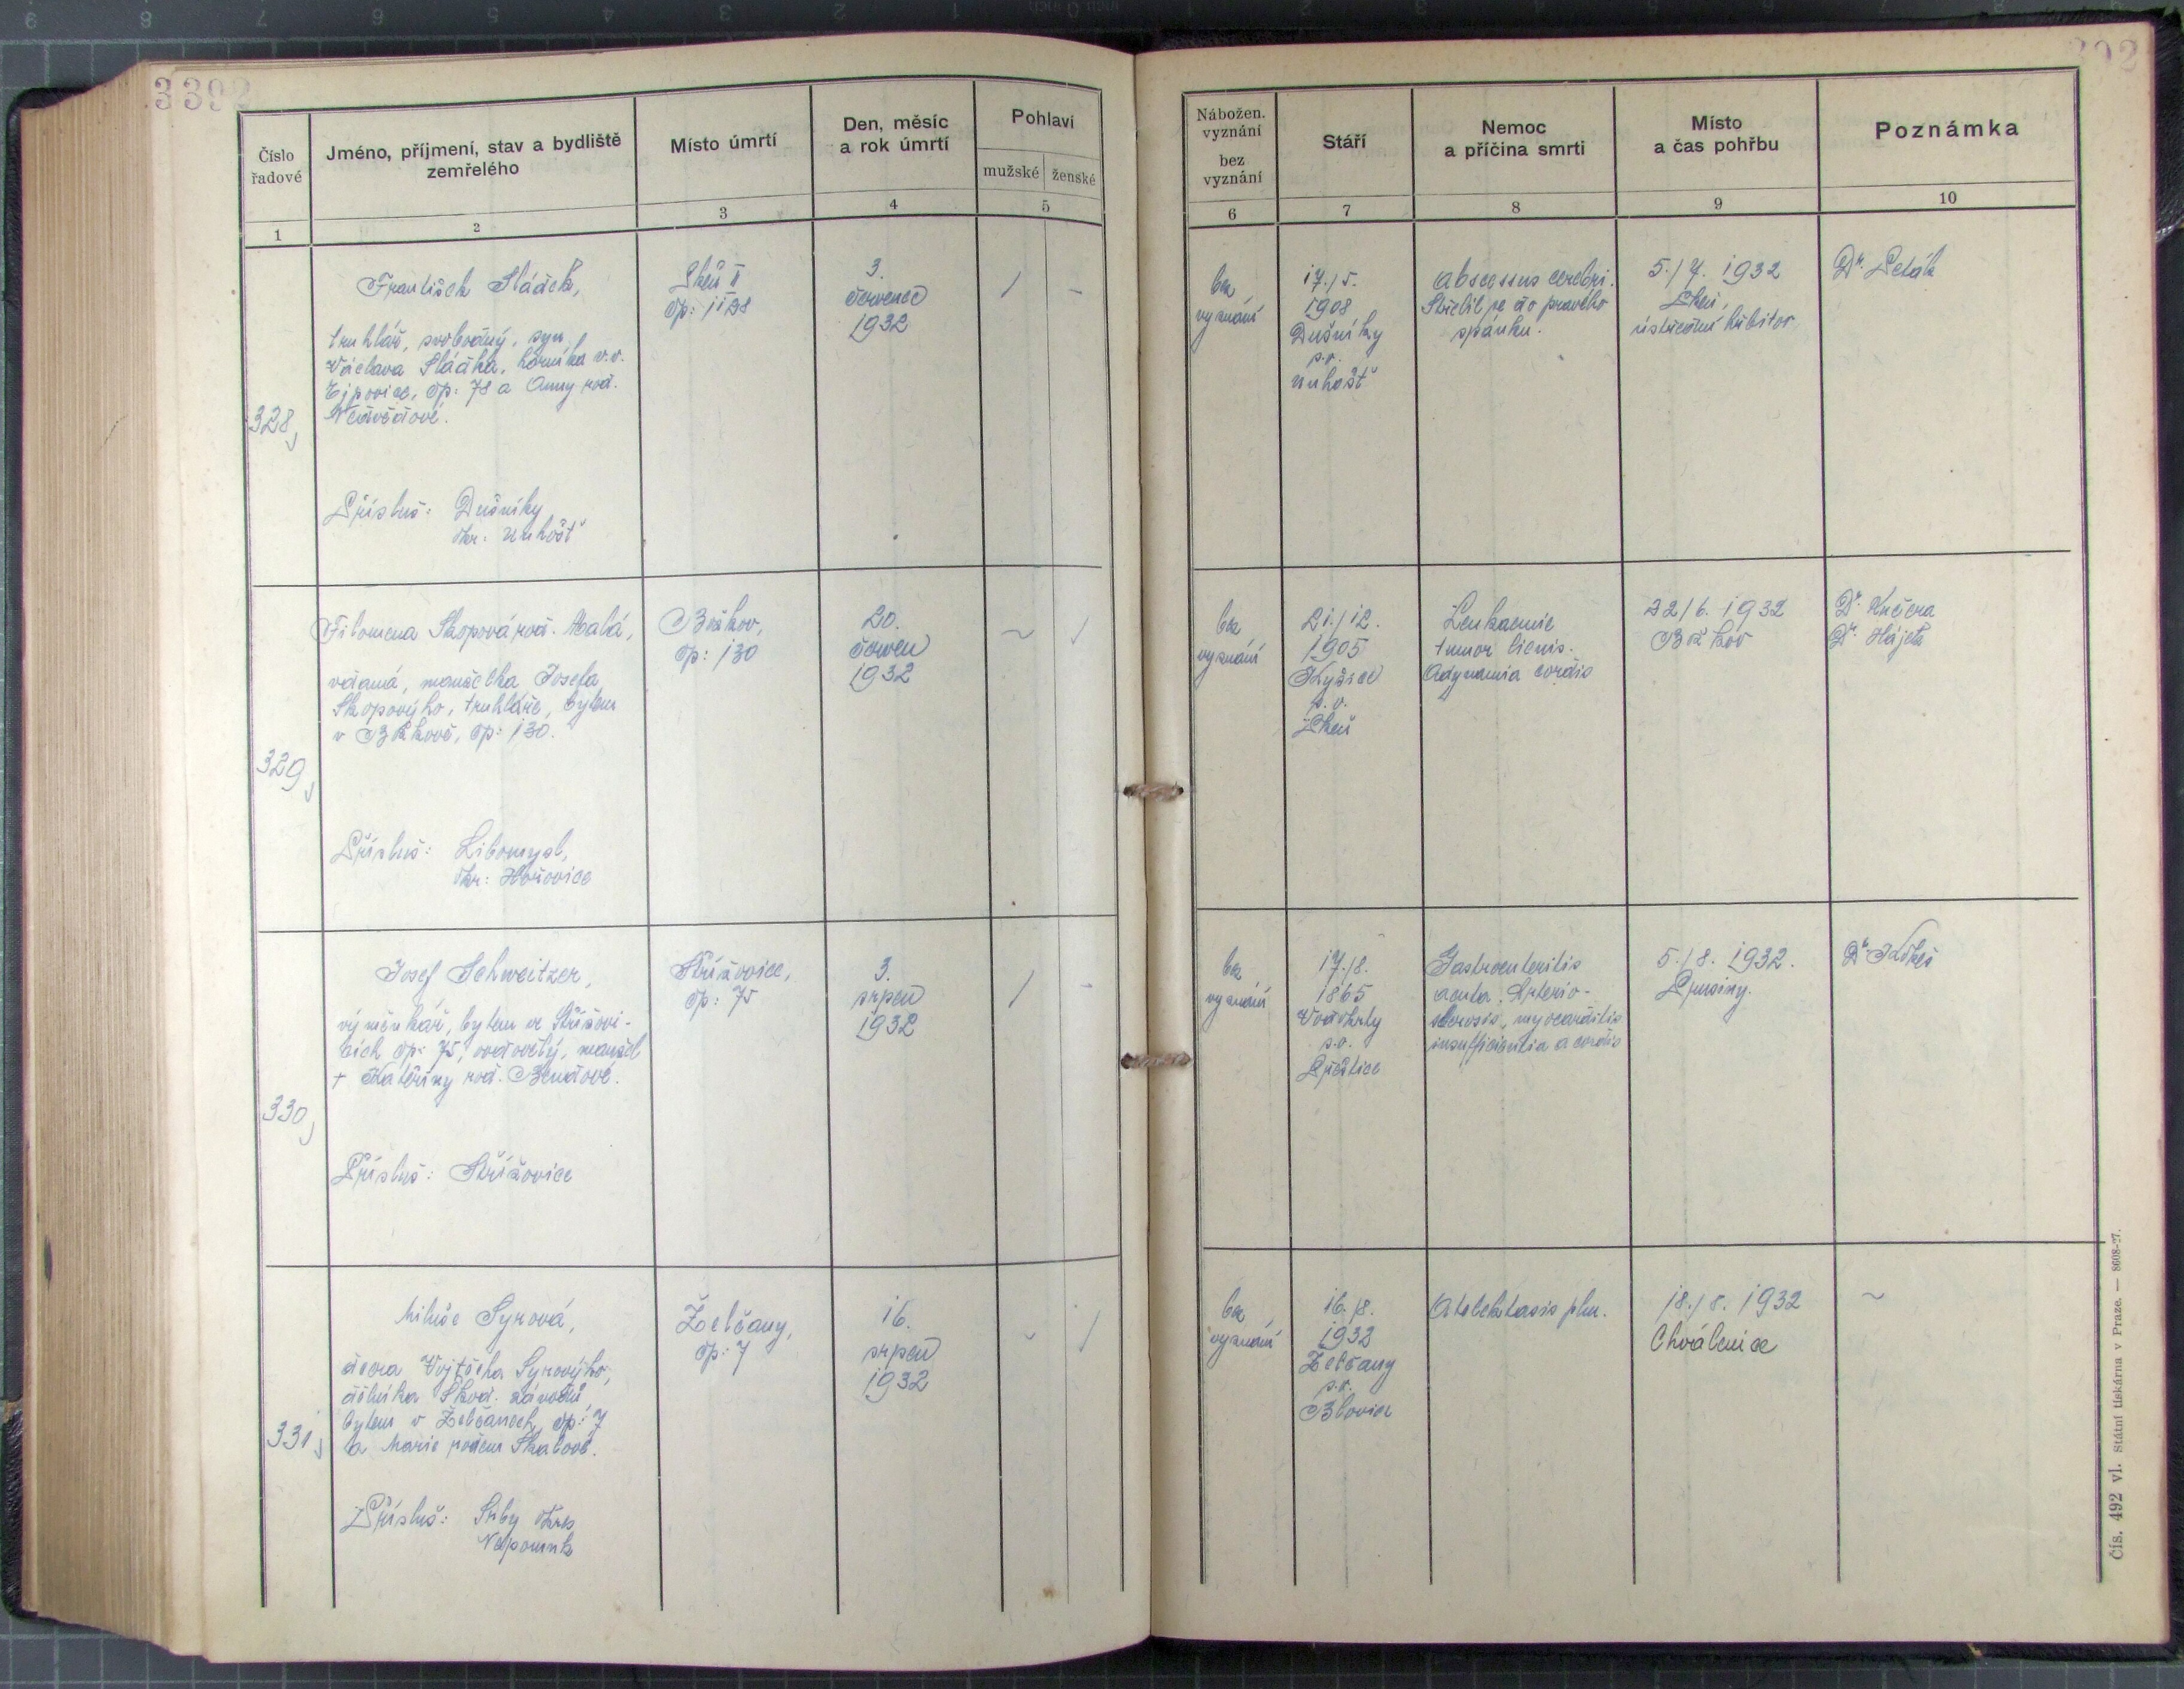 3392
392
Číslo
řadové
Jméno, příjmení, stav a bydliště
zemřelého
Místo úmrtí
Den, měsíc
a rok úmrtí
Pohlaví
mužské
ženské
Nábožen.
vyznání
bez
vyznání
Stáří
Nemoc
a příčina smrti
Místo
a čas pohřbu
Poznámka
1
2
3
4
5
6
7
8
9
10
328,
František Sládek,
truhlář, svobodný, syn
Václava Sládka, horníka v.v.
Ejpovice, čp: 78 a Anny rod.
Přísluš: Dušníky
okr: Unhošť
Plzeň II
čp: 1198
3.
červenec
1932
/
-
bez
vyznání
17./5.
1908
Dušníky
p.o.
Unhošť
abscessus cerebri.
Střelil se do pravého
spánku.
5./7. 1932
Plzeň,
ústřední hřbitov
Dr. Peták
329,
Filomena Skopová roz. Malá,
vdaná, manželka Josefa
Skopovýho, truhláře, bytem
v Božkově, čp: 130.
Přísluš: Libomyšl,
okr: Hořovice
Božkov,
čp: 130
20.
červen
1932
~
/
bez
vyznání
21./12.
1905
Kyšice
p.o.
Plzeň
Leukaemie
tumor lienis.
Adynamia cordis
22/6. 1932
Božkov
Dr. Kučera
Dr. Hájek
330,
Josef Schweitzer,
výměnkář, bytem ve Střížovi-
cích čp: 75, vdovělý, manžel
+ Kateřiny roz. Bendové.
Přísluš: Střížovice
Střížovice,
čp: 75
3.
srpen
1932
/
-
bez
vyznání
17./8.
1865
Vodokrty
p.o.
Přeštice
Gastroenteritis
acuta. Arterio-
sclerosis, myocarditis
insufficientia a cordis
5./8. 1932.
Prusiny.
331,
Miluše Syrová,
dcera Vojtěcha Syrovýho,
dělníka Škod. závodů,
bytem v Želčanech, čp: 7
a Marie rozem
Přísluš: Srby okres
Nepomuk
Želčany,
čp: 7
16.
srpen
1932
~
/
bez
vyznání
16./8.
1932
Želčany
p.o.
Blovice
Atelektasis plm.
18./8. 1932
Chválenice
~
Čís. 492 vl. Státní tiskárna v Praze. — 8608-27.